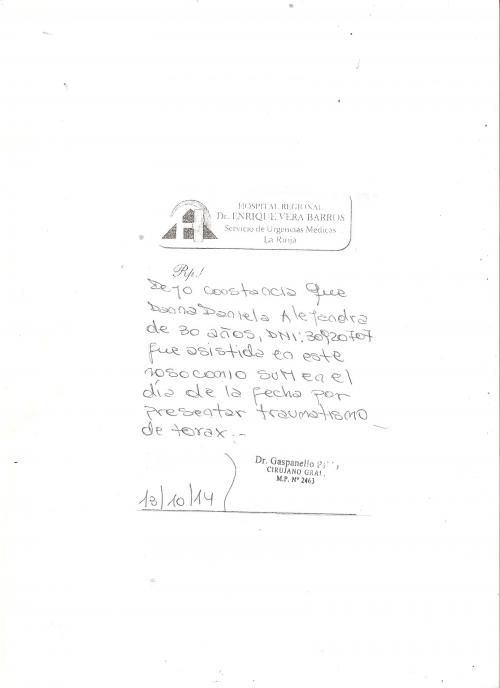 HOSPITAL REGIONAL
Dr. ENRIQUE VERA BARROS
Servicio de Urgencias Médicas
La Rioja
Rp.!
Dejo constancia que
Danna Daniela Alejandra
de 30 años, DNI: 30920707
fue asistida en este
nosocomio SUM en el
día de la fecha por
presentar traumatismo
de torax.-
Dr. Gaspanello
CIRUJANO GRAL.
M.P. Nº 2463
13/10/14